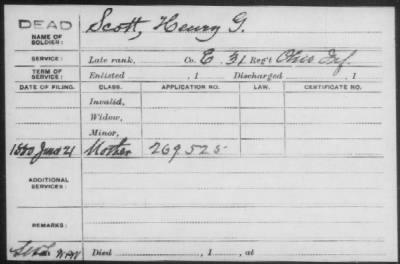 DEAD
NAME OF SOLDIER: Scott, Henry G.
SERVICE: Late rank, Co. E, 31 Reg't Ohio Inf.
TERM OF SERVICE: Enlisted , 1 Discharged , 1
DATE OF FILING. CLASS. APPLICATION NO. LAW. CERTIFICATE NO.
Invalid,
Widow,
Minor,
1880 June 21 Mother 269525
ADDITIONAL SERVICES:
REMARKS:
Died , 1 , at